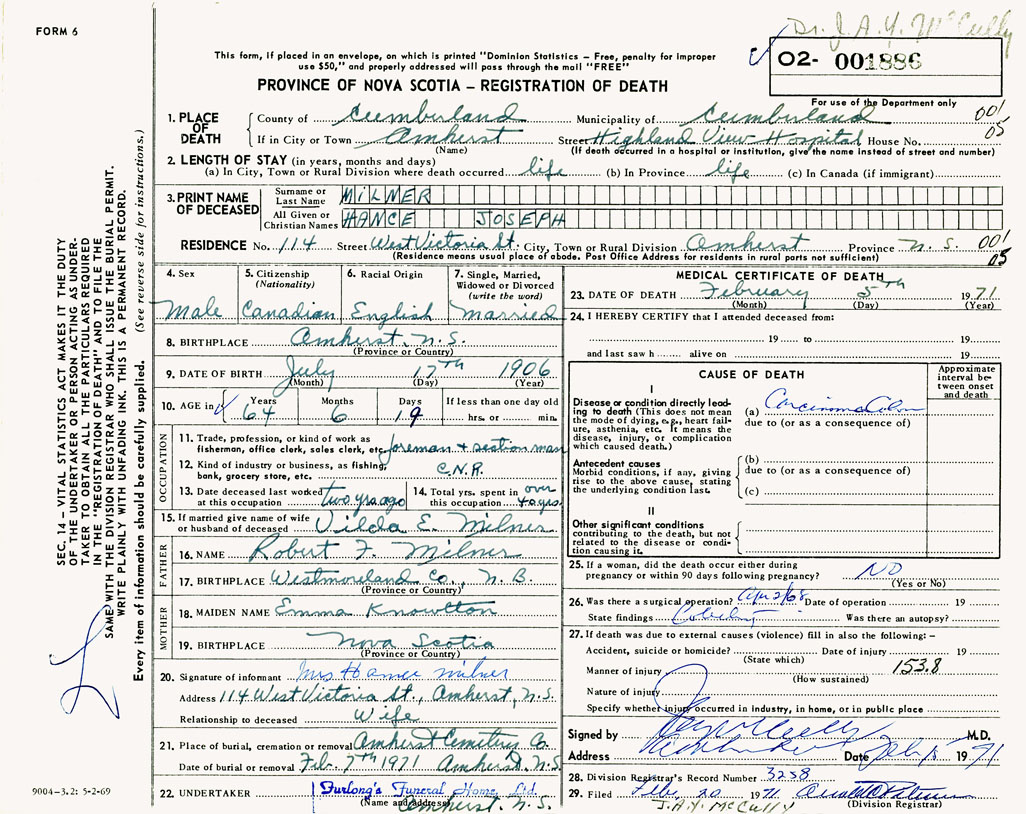 FORM 6
Dr. J. A. Y. McCully
This form, if placed in an envelope, on which is printed "Dominion Statistics – Free, penalty for improper
use $50," and properly addressed will pass through the mail "FREE"
O2- 001886
PROVINCE OF NOVA SCOTIA – REGISTRATION OF DEATH
For use of the Department only
1. PLACE OF DEATH
County of Cumberland Municipality of Cumberland 001
If in City or Town Amherst Street Highland View Hospital House No. 05
(Name) (If death occurred in a hospital or institution, give the name instead of street and number)
2. LENGTH OF STAY (in years, months and days)
(a) In City, Town or Rural Division where death occurred life (b) In Province life (c) In Canada (if immigrant)
3. PRINT NAME OF DECEASED
Surname or Last Name MILNER
All Given or Christian Names HANCE JOSEPH
RESIDENCE No. 114 Street West Victoria St. City, Town or Rural Division Amherst Province N.S. 001
(Residence means usual place of abode. Post Office Address for residents in rural parts not sufficient) 05
4. Sex
Male
5. Citizenship
(Nationality)
Canadian
6. Racial Origin
English
7. Single, Married,
Widowed or Divorced
(write the word)
married
8. BIRTHPLACE Amherst, N.S.
(Province or Country)
9. DATE OF BIRTH July 17TH 1906
(Month) (Day) (Year)
10. AGE in Years Months Days If less than one day old
64 6 19 hrs. or min.
OCCUPATION
11. Trade, profession, or kind of work as
fisherman, office clerk, sales clerk, etc. foreman + section man
12. Kind of industry or business, as fishing,
bank, grocery store, etc. C.N.R.
13. Date deceased last worked
at this occupation two yrs ago
14. Total yrs. spent in
this occupation over 40 yrs
15. If married give name of wife
or husband of deceased Vilda E. Milner
FATHER
16. NAME Robert F. Milner
17. BIRTHPLACE Westmoreland Co., N.B.
(Province or Country)
MOTHER
18. MAIDEN NAME Emma Knowlton
19. BIRTHPLACE Nova Scotia
(Province or Country)
20. Signature of informant Mrs Hance Milner
Address 114 West Victoria St., Amherst, N.S.
Relationship to deceased Wife
21. Place of burial, cremation or removal Amherst Cemetery Co.
Date of burial or removal Feb. 7TH 1971 Amherst, N.S.
22. UNDERTAKER Furlong's Funeral Home, Ltd.
(Name and address) Amherst, N.S.
MEDICAL CERTIFICATE OF DEATH
23. DATE OF DEATH February 5TH 1971
(Month) (Day) (Year)
24. I HEREBY CERTIFY that I attended deceased from:
19 to 19
and last saw h alive on 19
CAUSE OF DEATH
Approximate interval between onset and death
I
Disease or condition directly leading to death (This does not mean the mode of dying, e.g., heart failure, asthenia, etc. It means the disease, injury, or complication which caused death.)
(a) Carcinoma Colon
due to (or as a consequence of)
Antecedent causes
Morbid conditions, if any, giving rise to the above cause, stating the underlying condition last.
(b)
due to (or as a consequence of)
(c)
II
Other significant conditions
contributing to the death, but not related to the disease or condition causing it.
25. If a woman, did the death occur either during
pregnancy or within 90 days following pregnancy? NO
(Yes or No)
26. Was there a surgical operation? Apr 2/68 Date of operation 19
State findings Was there an autopsy?
27. If death was due to external causes (violence) fill in also the following: –
Accident, suicide or homicide? Date of injury 19
(State which)
Manner of injury 153.8
(How sustained)
Nature of injury
Specify whether injury occurred in industry, in home, or in public place
Signed by M.D.
Address Date Feb 1971
28. Division Registrar's Record Number 3238
29. Filed Feb. 20 1971
J.A.Y. McCULLY (Division Registrar)
SEC. 14 – VITAL STATISTICS ACT MAKES IT THE DUTY
OF THE UNDERTAKER OR PERSON ACTING AS UNDER-
TAKER TO OBTAIN ALL THE PARTICULARS REQUIRED
IN THE "REGISTRATION OF DEATH" AND TO FILE THE
SAME WITH THE DIVISION REGISTRAR WHO SHALL ISSUE THE BURIAL PERMIT.
WRITE PLAINLY WITH UNFADING INK. THIS IS A PERMANENT RECORD.
Every item of information should be carefully supplied. (See reverse side for instructions.)
9004–3.2: 5-2-69